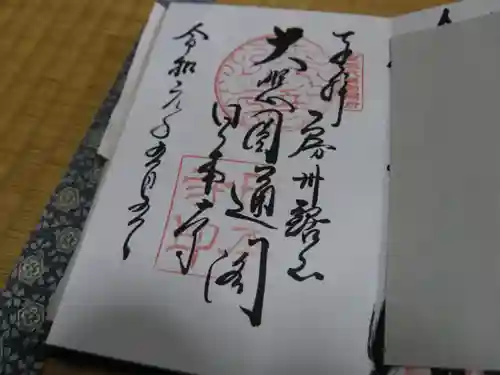 奉拝 房州鋸山
大悲圓通閣
日本寺
令和元年五月五日